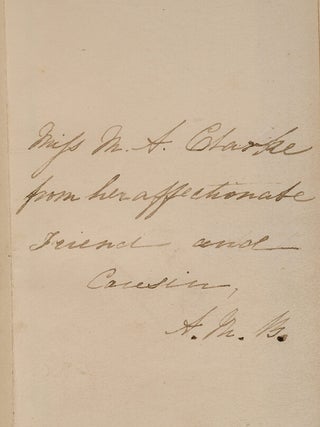 Miss M. A. Clarke
from her affectionate
Friend and
Cousin,
A. M. B.